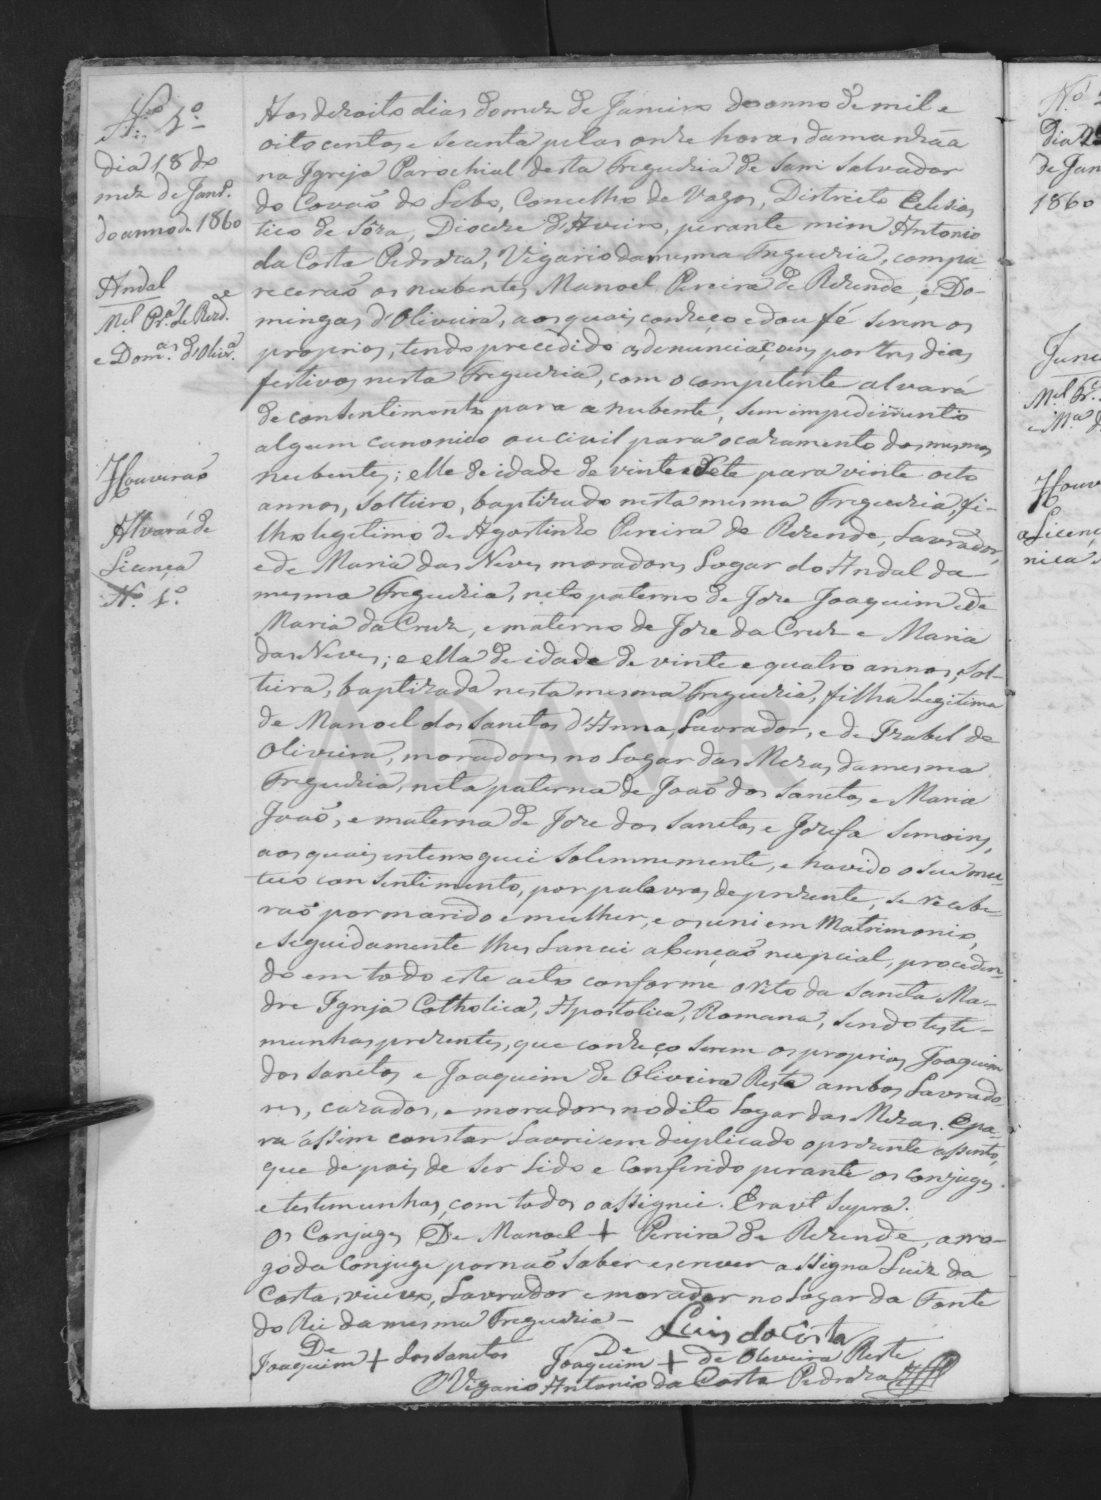 N.º 1.º
Dia 18 do
mez de Janr.º
do anno de 1860
Andal
M.el Pr.ª de Rezd.e
e Dom.as d'Olivr.ª
Houverão
Alvará de
Licença
N.º 1.º
Aos dezoito dias do mez de Janeiro do anno de mil e
oito centos e secenta pelas onze horas da manhãa
na Igreja Parochial desta Freguezia de Sam Salvador
do Covão do Lobo, Concelho de Vagos, Districto Eclesias
tico de Sôza, Dioceze d'Aveiro, perante mim Antonio
da Costa Pedroza, Vigario da mesma Freguezia, compa-
recerão os nubentes Manoel Pereira de Rezende, e Do-
mingas d'Oliveira, aos quais conheço e dou fé serem os
proprios, tendo precedido as denunciaçoens por tres dias
festivos nesta Freguezia, com o competente alvará
de consentimento para a nubente, sem impedimento
algum canonico ou civil para o cazamento dos mesmos
nubentes; elle de idade de vinte e sete para vinte oito
annos, solteiro, baptizado nesta mesma Freguezia, fi-
lho legitimo de Agostinho Pereira de Rezende, Lavrador,
e de Maria das Neves moradores Logar do Andal da
mesma Freguezia, neto paterno de Joze Joaquim e de
Maria da Cruz, e materno de Joze da Cruz e Maria
das Neves; e ella de idade de vinte e quatro annos, sol-
teira, baptizada nesta mesma Freguezia, filha Legitima
de Manoel dos Sanctos d'Anna, Lavrador, e de Izabel de
Oliveira, moradores no Logar das Mezas da mesma
Freguezia, neta paterna de João dos Sanctos e Maria
João, e materna de Joze dos Sanctos e Jozefa Simoins,
aos quais interroguei solemnemente, e havido o seu mu-
tuo consentimento, por palavras de prezente, se recebe-
rão por marido e mulher, e os uni em Matrimonio,
e seguidamente lhes lancei a benção nupcial, proceden-
do em todo este acto conforme o rito da Sancta Ma-
dre Igreja Catholica, Apostolica, Romana, sendo teste-
munhas prezentes, que conheço serem os proprios Joaquim
dos Sanctos e Joaquim de Oliveira Reste ambos Lavrado-
res, cazados, e moradores no dito Logar das Mezas. E pa-
ra assim constar Lavrei em duplicado o prezente assento,
que depois de ser Lido e Conferido perante os conjuges
e testemunhas, com todos o assignei. Era ut Supra.
Os Conjuges De Manoel + Pereira de Rezende, a ro-
go da Conjuge por não saber escrever assigna Luiz da
Costa, viuvo, Lavrador e morador no Logar da Fonte
do Rei da mesma Freguezia –
Luis da Costa
De
Joaquim + dos Sanctos
De
Joaquim + de Oliveira Reste
O Vigario Antonio da Costa Pedroza